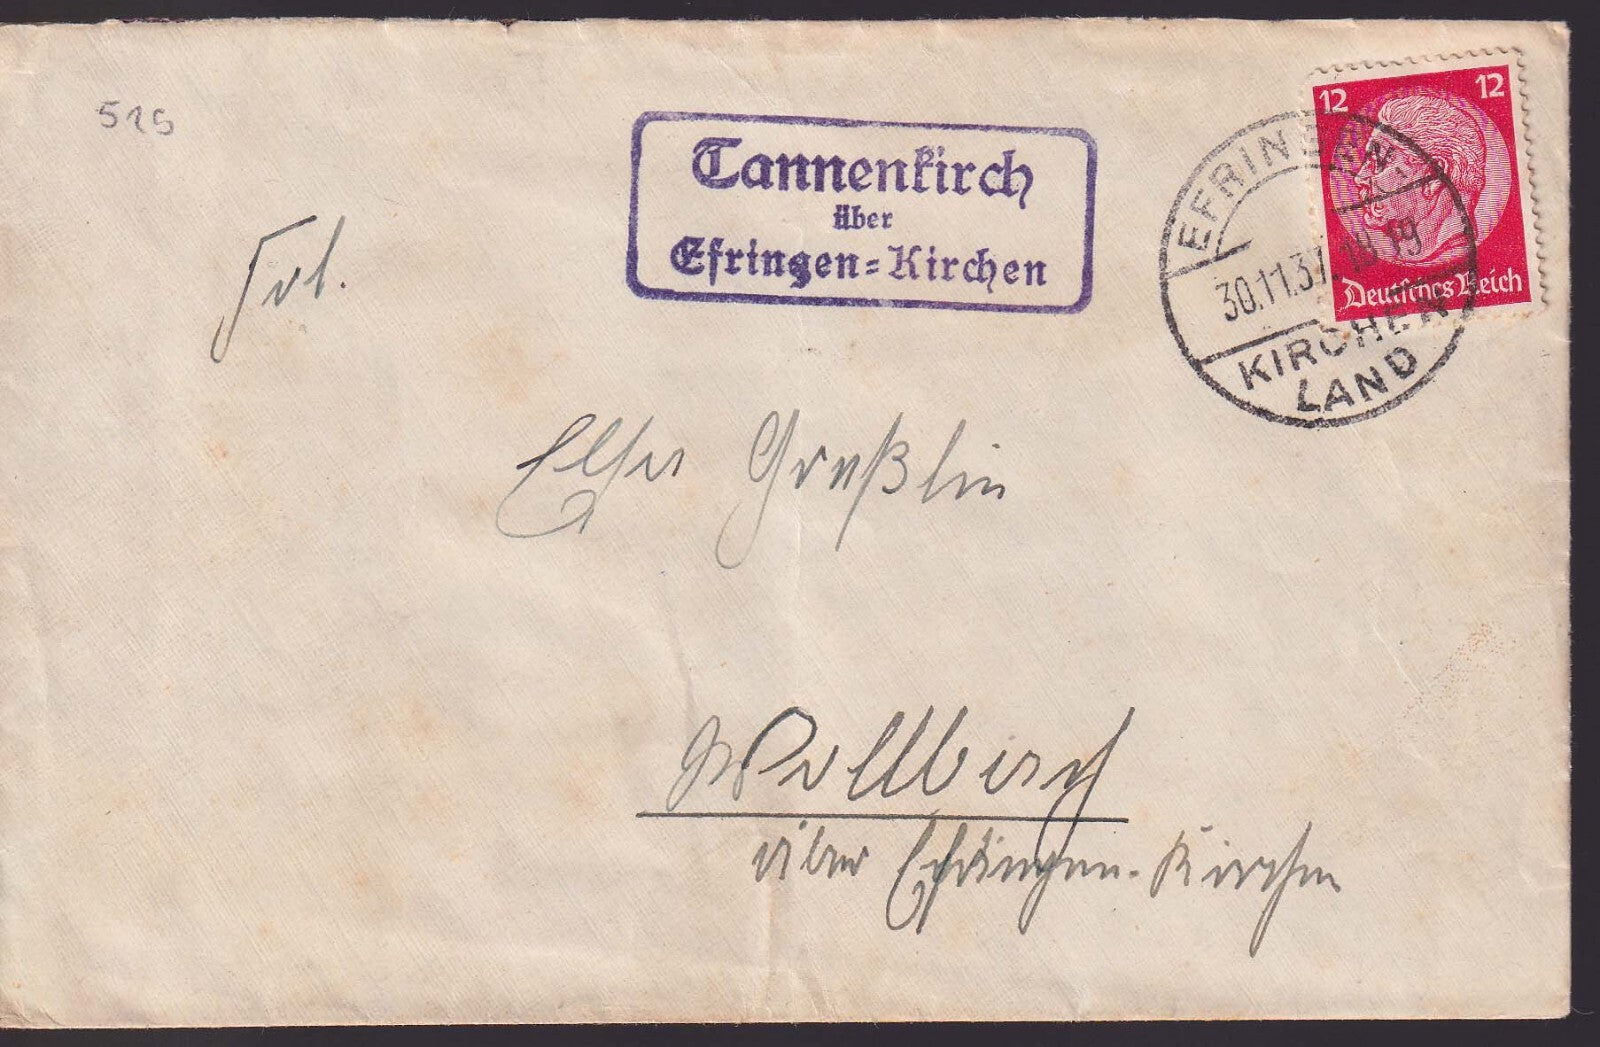 525
Tannenkirch
über
Efringen=Kirchen
12 12
Deutsches Reich
EFRINGEN-
30.11.37.18-19
KIRCHEN
LAND
Frl.
Else Graßlin
Wollbach
über Efringen-Kirchen